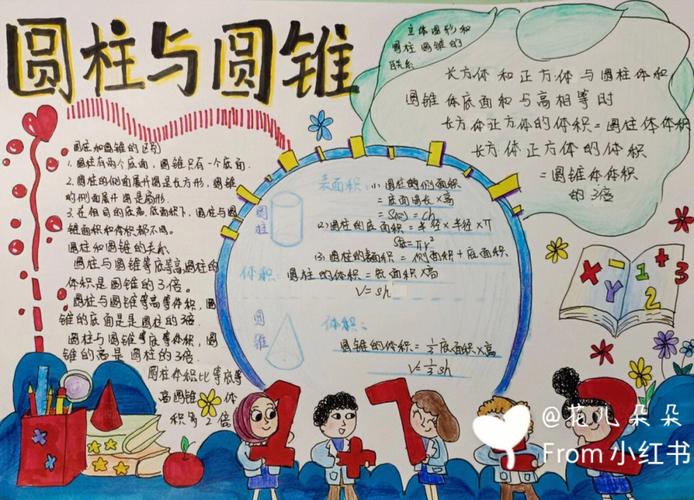 圆柱与圆锥
圆柱和圆锥的区别
1.圆柱有两个底面,圆锥只有一个底面.
2.圆柱的侧面展开图是长方形,圆锥
的侧面展开图是扇形.
3.在相同的底面底面积下,圆柱与圆
锥面积和体积都不同.
圆柱和圆锥的关系
圆柱与圆锥等底等高圆柱的
体积是圆锥的3倍.
圆柱与圆锥等高等体积,圆
锥的底面是是圆柱的3倍.
圆柱与圆锥等底等体积,圆
锥的高是圆柱的3倍.
圆柱体积比等底等
高圆锥 体
积多2倍
立体图形和
圆柱圆锥的
联系
长方体和正方体与圆柱体积
圆锥体底面积与高相等时
长方体正方体的体积=圆柱体体积
长方体正方体的体积
=圆锥体体积
的3倍
圆柱
表面积:(1)圆柱的侧面积
=底面周长×高
=Ch
(2)圆柱的底面积=半径×半径×π
=πr²
(3)圆柱的表面积=侧面积+底面积
体积:圆柱的体积=底面积×高
V=sh
圆锥
体积:
圆锥的体积=1/3底面积×高
V=1/3sh
X Y - 1 + 3
2
1+1=2
@花儿朵朵
From 小红书